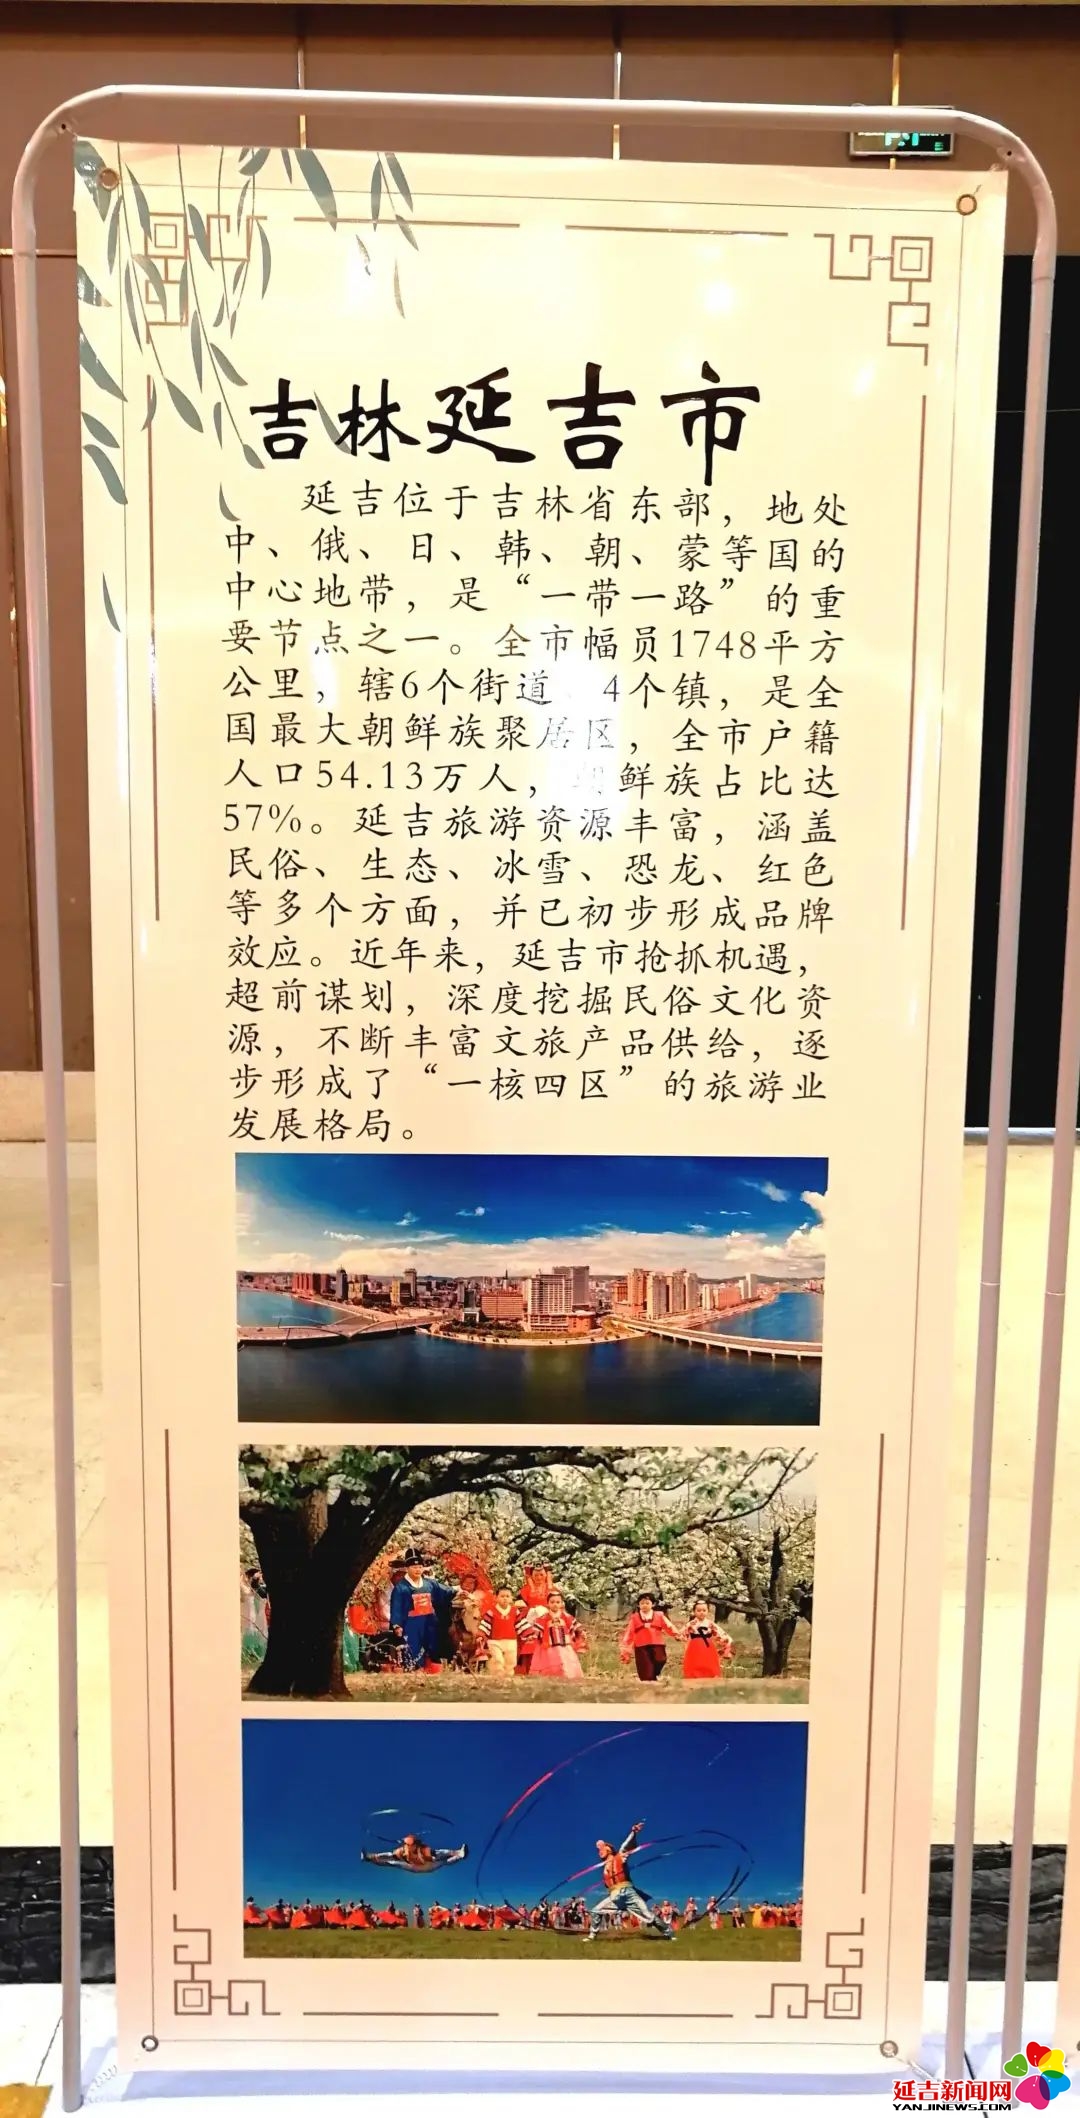 吉林延吉市
延吉位于吉林省东部，地处
中、俄、日、韩、朝、蒙等国的
中心地带，是“一带一路”的重
要节点之一。全市幅员1748平方
公里，辖6个街道、4个镇，是全
国最大朝鲜族聚居区，全市户籍
人口54.13万人，朝鲜族占比达
57%。延吉旅游资源丰富，涵盖
民俗、生态、冰雪、恐龙、红色
等多个方面，并已初步形成品牌
效应。近年来，延吉市抢抓机遇，
超前谋划，深度挖掘民俗文化资
源，不断丰富文旅产品供给，逐
步形成了“一核四区”的旅游业
发展格局。
延吉新闻网
YANJINEWS.COM